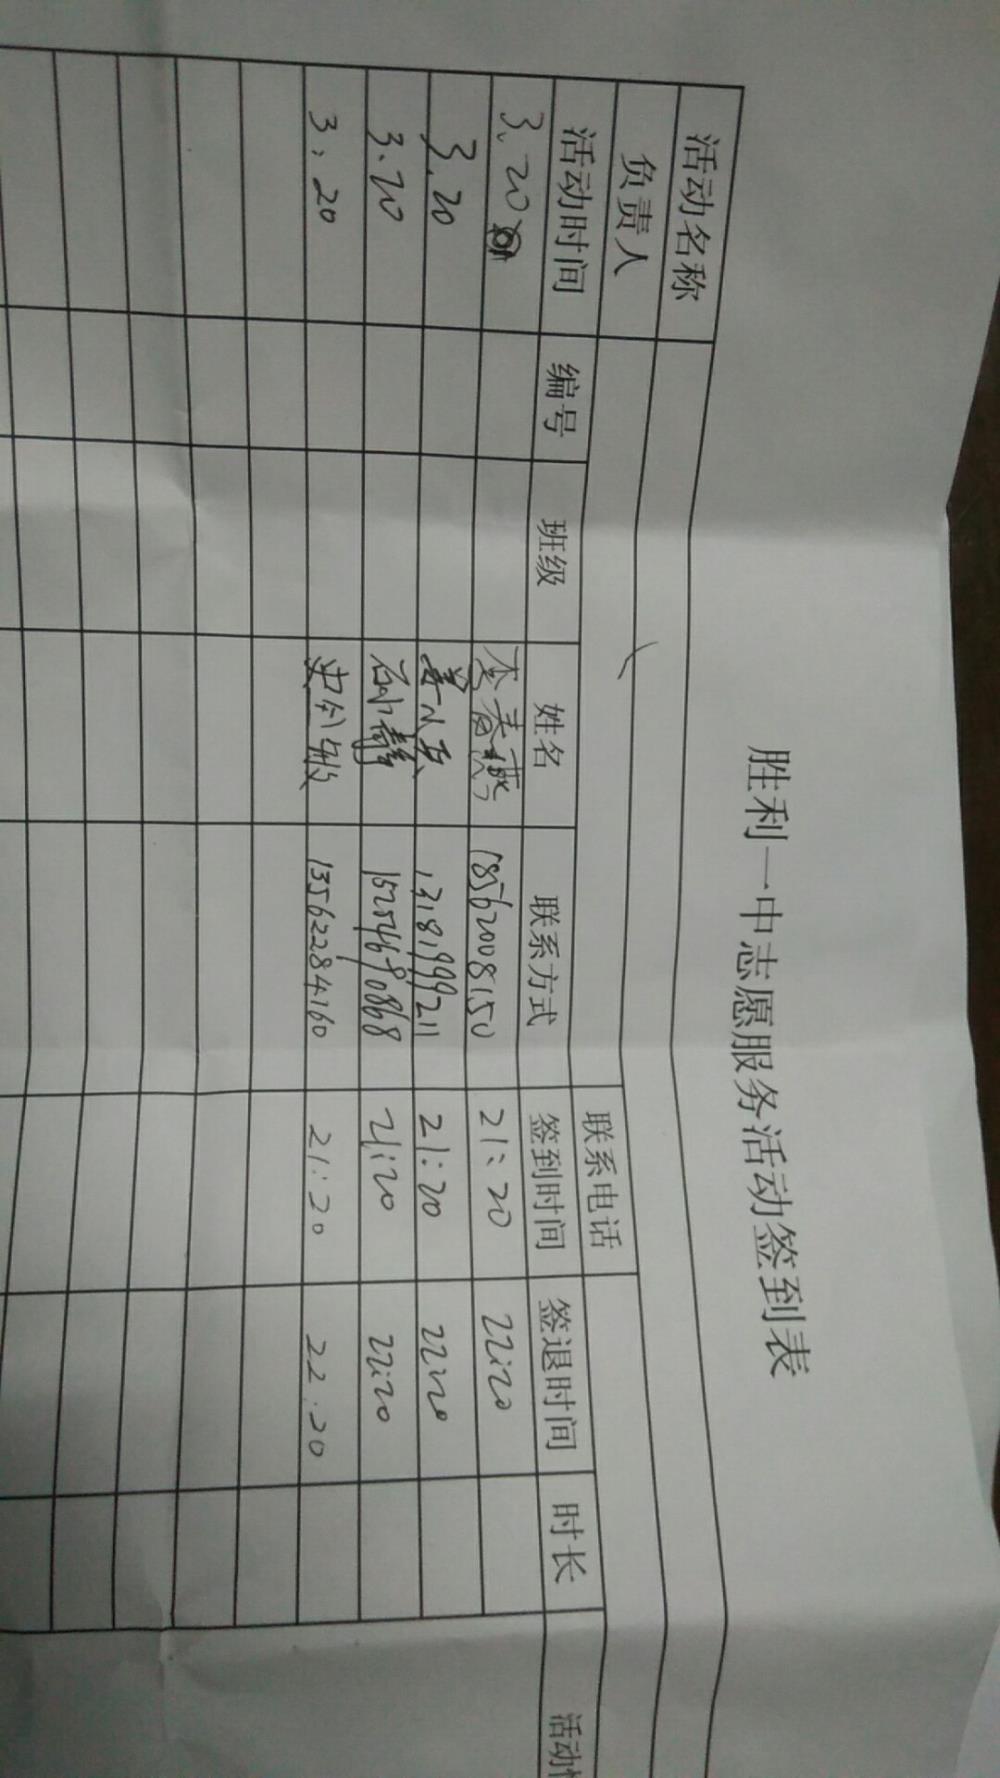 胜利一中志愿服务活动签到表
活动名称
负责人 联系电话
活动时间 编号 班级 姓名 联系方式 签到时间 签退时间 时长 活动
3.20 李春燕 18562008150 21:20 22:20
3.20 13181999211 21:20 22:20
3.20 石小静 15254690868 21:20 22:20
3.20 13562284160 21:20 22.20